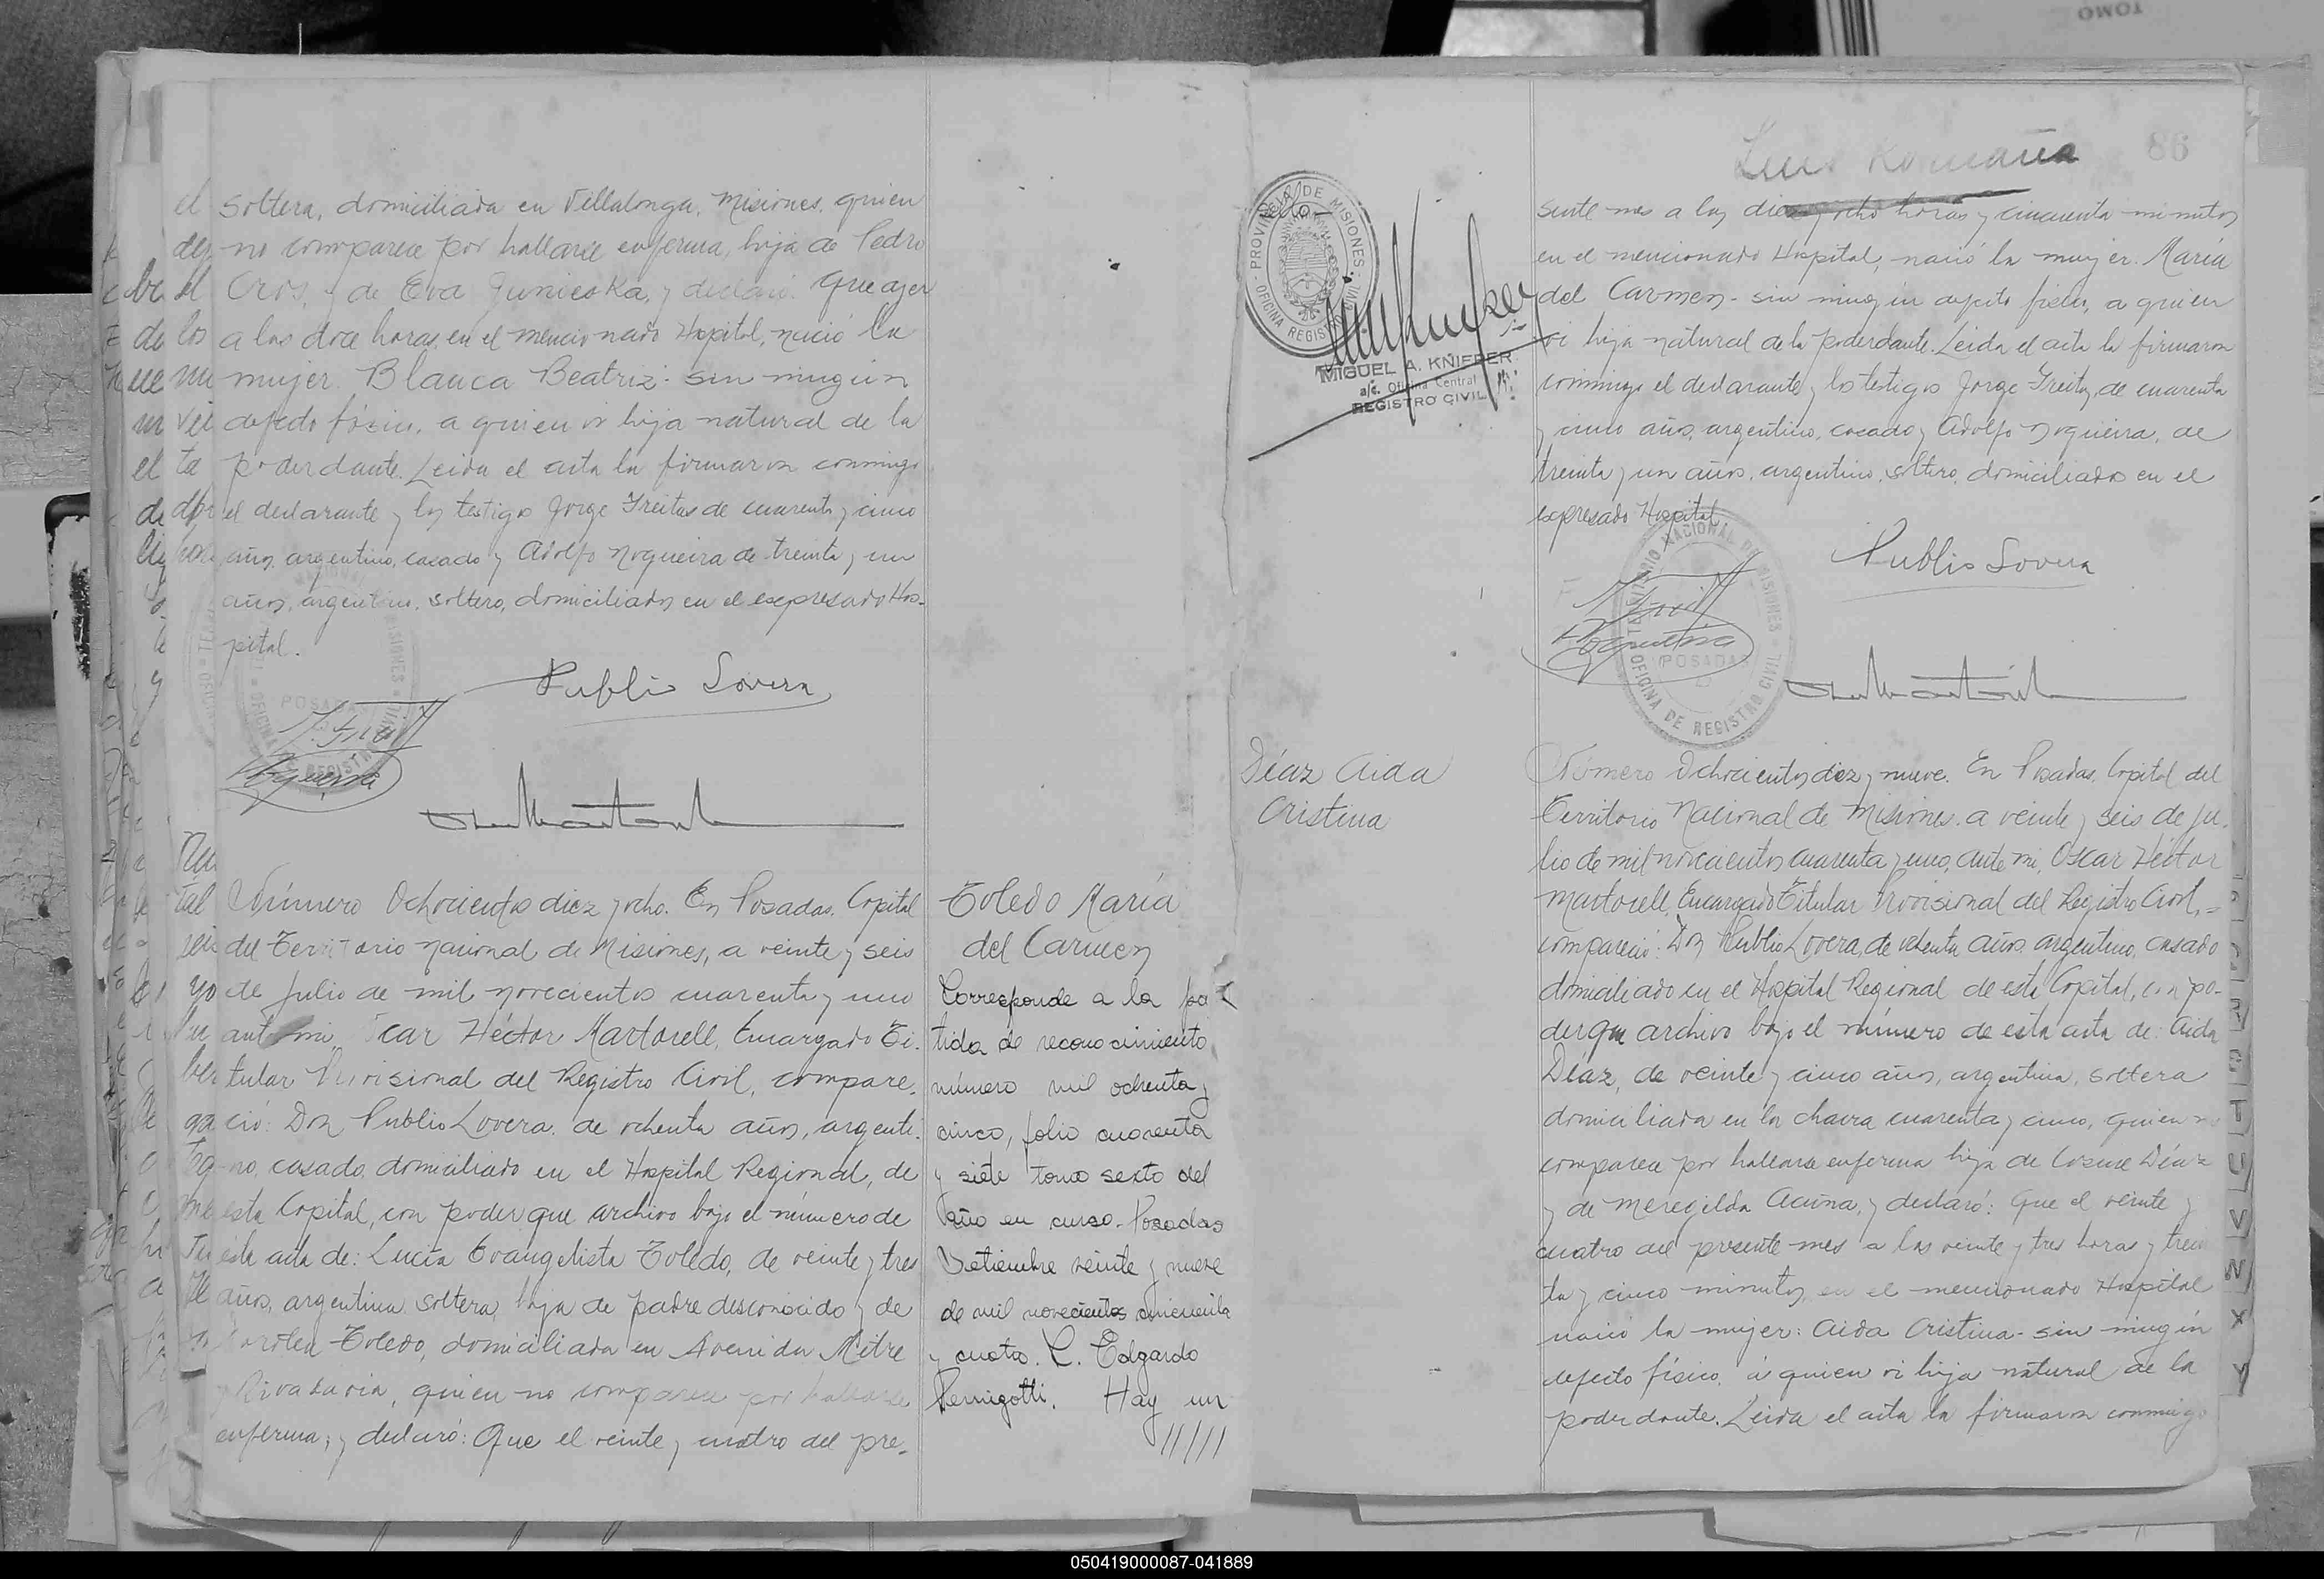 soltera, domiciliada en Villalonga, Misiones, quien
no comparece por hallarse enferma, hija de Pedro
Cros, y de Eva Junieska, y declaró: Que ayer
a las doce horas, en el mencionado Hospital, nació la
mujer. Blanca Beatriz - sin ningún
defecto físico, a quien vi hija natural de la
poderdante. Leida el acta la firmaron conmigo
el declarante y los testigos Jorge Freitas de cuarenta y cinco
años, argentino, casado y Adolfo Nogueira de treinta y un
años, argentino, soltero, domiciliados en el expresado Hos-
pital.
Publio Lovera
POSADAS
Nogueira
Número Ochocientos diez y ocho. En Posadas, Capital
del Territorio Nacional de Misiones, a veinte y seis
de Julio de mil novecientos cuarenta y uno
ante mi, Oscar Héctor Martorell, Encargado Ti-
tular Provisional del Registro Civil, compare-
ció: Don Publio Lovera, de ochenta años, argenti-
no, casado, domiciliado en el Hospital Regional, de
esta Capital, con poder que archivo bajo el número de
ésta acta de: Lucía Evangelista Toledo, de veinte y tres
años, argentina, soltera, hija de padre desconocido y de
Toledo, domiciliada en Avenida Mitre
y Rivadavia, quien no comparece por hallarse
enferma; y declaró: Que el veinte y cuatro del pre-
Toledo María
del Carmen
Corresponde a la par
tida de reconocimiento
número mil ochenta y
cinco, folio cuarenta
y siete tomo sexto del
año en curso. Posadas
Setiembre veinte y nueve
de mil novecientos cincuenta
y cuatro. L. Edgardo
Pernigotti. Hay un
/////
TOMO
86
PROVINCIA DE MISIONES
OFICINA REGISTRO CIVIL
MIGUEL A. KNIEPER
a/c. Oficina Central
REGISTRO CIVIL
sente mes a las diez y ocho horas y cincuenta minutos
en el mencionado Hospital, nació la mujer. María
del Carmen - sin ningún defecto físico, a quien
vi hija natural de la poderdante. Leida el acta la firmaron
conmigo el declarante y los testigos Jorge Freitas, de cuarenta
y cinco años, argentino, casado y Adolfo Nogueira, de
treinta y un años, argentino, soltero, domiciliados en el
expresado Hospital
TERRITORIO NACIONAL DE MISIONES
POSADAS
OFICINA DE REGISTRO CIVIL
Publio Lovera
Nogueira
Díaz Aida
Cristina
Número Ochocientos diez y nueve. En Posadas, Capital del
Territorio Nacional de Misiones, a veinte y seis de Ju-
lio de mil novecientos cuarenta y uno, ante mi, Oscar Héctor
Martorell, Encargado Titular Provisional del Registro Civil, =
compareció: Don Publio Lovera, de ochenta años, argentino, casado
domiciliado en el Hospital Regional de esta Capital, con po-
der que archivo bajo el número de esta acta de: Aida
Díaz, de veinte y cinco años, argentina, soltera
domiciliada en la chacra cuarenta y cinco, quien no
comparece por hallarse enferma hija de Cosme Díaz
y de Meregilda Acuña, y declaró: Que el veinte y
cuatro del presente mes a las veinte y tres horas y trein
ta y cinco minutos, en el mencionado Hospital
nació la mujer: Aida Cristina - sin ningún
defecto físico, a quien vi hija natural de la
poderdante. Leida el acta la firmaron conmigo
050419000087-041889